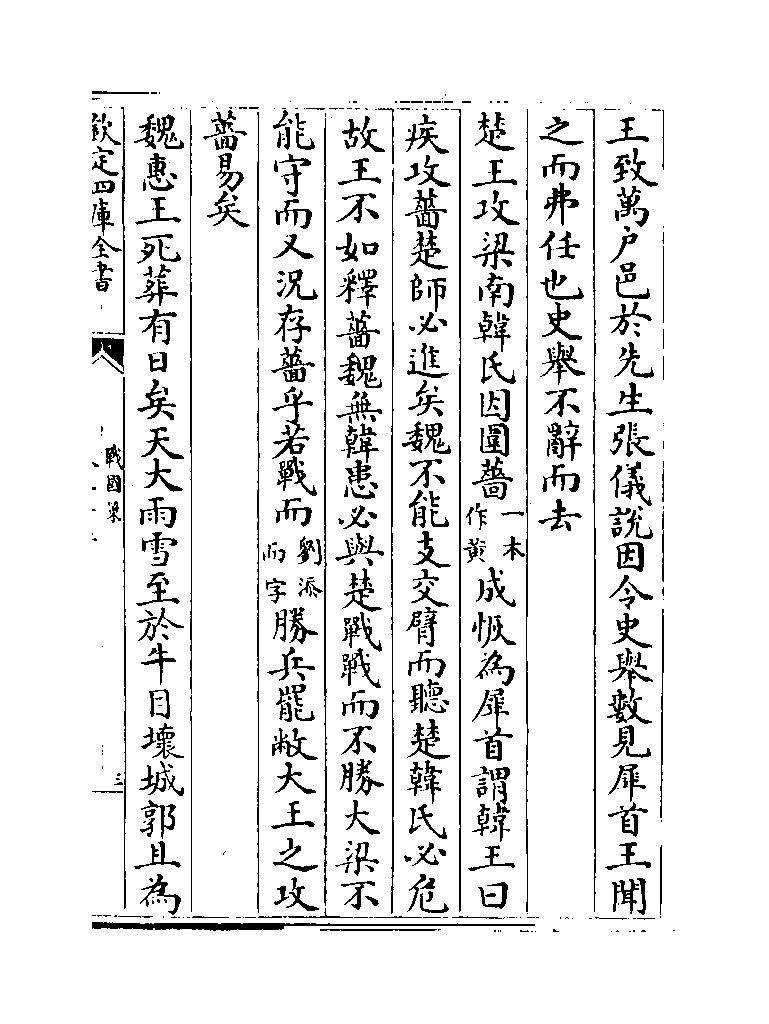 王致萬户邑於先生張儀說因令史舉數見犀首王聞
之而弗任也史舉不辭而去
楚王攻梁南韓氏因圍薔一本作黄成恢為犀首謂韓王曰
疾攻薔楚師必進矣魏不能支交臂而聽楚韓氏必危
故王不如釋薔魏無韓患必與楚戰戰而不勝大梁不
能守而又況存薔乎若戰而劉添而字勝兵罷敝大王之攻
薔易矣
魏惠王死葬有日矣天大雨雪至於牛目壞城郭且為
欽定四庫全書
戰國策
三